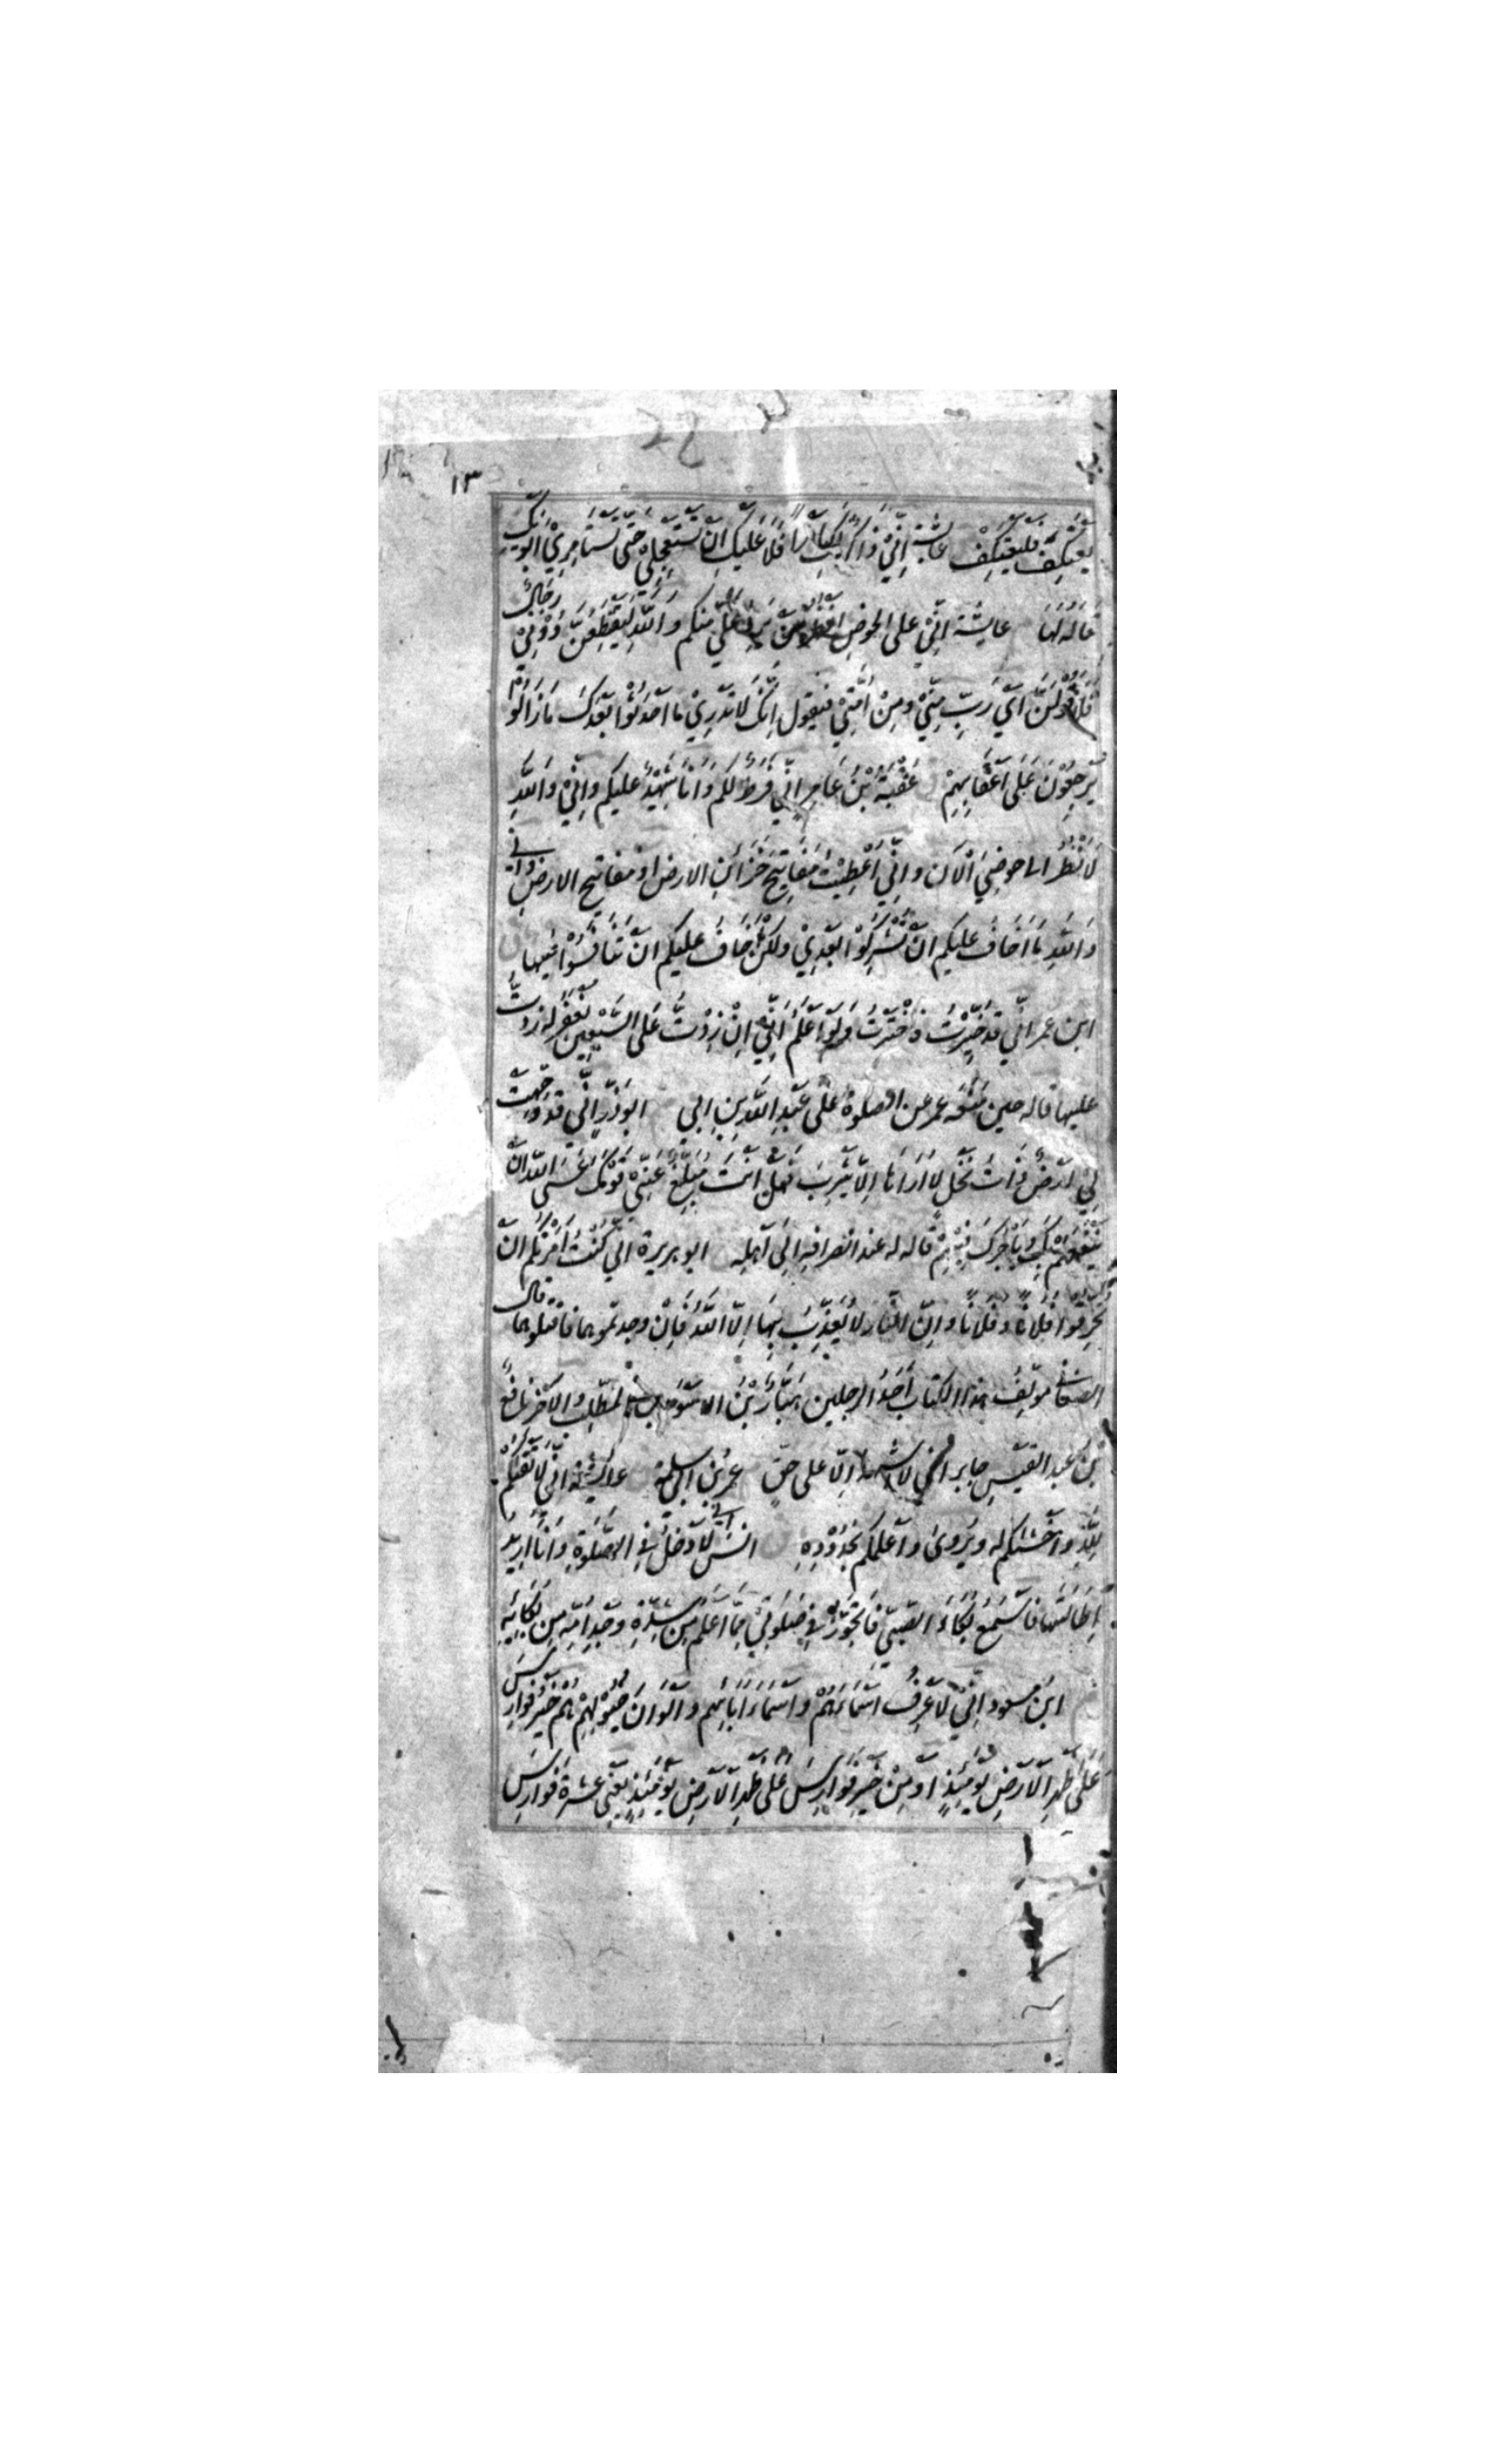 ١٣
يَعْتَكِفَ فَلْيَعْتَكِفْ عايشة اِنِّيْ ذَاكِرٌ لَكِ اَمْرًا فَلَا عَلَيْكِ اَنْ تَسْتَعْجِلِيْ حَتّٰى تَسْتَامِرِيْ اَبَوَيْكِ
قَالَهُ لَهَا عايشة اِنِّيْ على الحوضِ اَنْتَظِرُ مَنْ يَرِدُ عَلَيَّ منكم وَاللّٰهِ لَيُقْتَطَعَنَّ دُوْنِيْ رِجَالٌ
فَلَاَقُوْلَنَّ اَيْ رَبِّ مِنِّيْ ومِنْ اُمَّتِيْ فيقول اِنَّكَ لَا تَدْرِيْ ما اَحْدَثُوْا بَعْدَكَ مَا زَالُوْا
يَرْجِعُوْنَ عَلٰى اَعْقَابِهِمْ عُقْبَةُ بْنُ عَامِرٍ اِنِّي فَرَطٌ لَكُمْ وَاَنَا شَهِيْدٌ عليكم واِنِّيْ وَاللّٰهِ
لَاَنْظُرُ الى حوضِيَ الْاٰن واِنِّي اُعْطِيْتُ مَفَاتِيْحَ خَزَائِنِ الارض اَوْ مفاتيح الارض وَاِنِّي
وَاللّٰهِ مَا اَخَافُ عليكم اَنْ تُشْرِكُوْا بَعْدِيْ ولكن اَخَافُ عليكم اَنْ تَنَافَسُوْا فيها
ابن عمر اِنِّي قَدْ خُيِّرْتُ فَاخْتَرْتُ وَلَوْ اَعْلَمُ اَنِّي اِنْ زِدْتُ عَلَى السَّبْعِيْنَ يُغْفَرُ له زِدْتُ
عليها قاله حين مَنَعَه عمر عن الصلوة عَلٰى عَبْدِ اللّٰهِ بْنِ اُبي ابوذرٍّ اِنِّي قد وُجِّهَتْ
لِيْ اَرْضٌ ذَاتُ نَخْلٍ لَا اُرَاهَا اِلَّا يَثْرِبَ فَهَلْ اَنْتَ مُبَلِّغٌ عَنِّيْ قَوْمَكَ عَسَى اللّٰهُ اَنْ
يَنْفَعَهُمْ بِكَ وَيَأْجُرَكَ فِيْهِمْ قَالَه له عند انصرافِهِ اِلٰى اَهْلِه ابو هريرة اِنِّي كُنْتُ اَمَرْتُكُمْ اَنْ
تُحْرِقُوْا فُلَانًا وفُلَانًا واِنَّ النَّار لَا يُعَذِّبُ بِهَا اِلَّا اللّٰهُ فَاِنْ وجدتموهما فاقتلوهما قال
الصغاني مولِّفُ هذا الكتاب اَحَدُ الرجلين هَبَّارُ بْنُ الاسود بن المطلب والآخر نافعُ
بْنُ عبد القيس جابر اِنِّي لا اَشْهَدُ اِلَّا عَلى حقٍّ عمر بن ابي سلمة عايشة اِنِّي لَاَتْقٰكُمْ
لِلّٰهِ واَخْشٰكُم له ويُرْوٰى وَاَعْلَمُكُم بِحُدُوْدِهِ انسٌ اِنِّي لَاَدْخُلُ فِي الصَّلٰوةِ وَاَنَا اُرِيْدُ
اِطَالَتَهَا فَاَسْمَعُ بُكَاءَ الصَّبِيِّ فَاَتَجَوَّزُ فِيْ صَلٰوتِيْ مِمَّا اَعْلَمُ مِنْ شِدَّةِ وَجْدِ اُمِّهِ مِنْ بُكَائِهِ
ابن مسعود اِنِّيْ لَاَعْرِفُ اَسْمَاءَهُمْ وَاَسْمَاءَ اٰبَائِهِم وَاَلْوَانَ خُيُوْلِهِمْ هُمْ خَيْرُ فَوَارِسَ
عَلٰى ظَهْرِ الْاَرْضِ يَوْمَئِذٍ اَوْ مِنْ خَيْرِ فَوَارِسَ عَلٰى ظَهْرِ الْاَرْضِ يَوْمَئِذٍ يَعْنِي عَشَرَةَ فَوَارِسَ